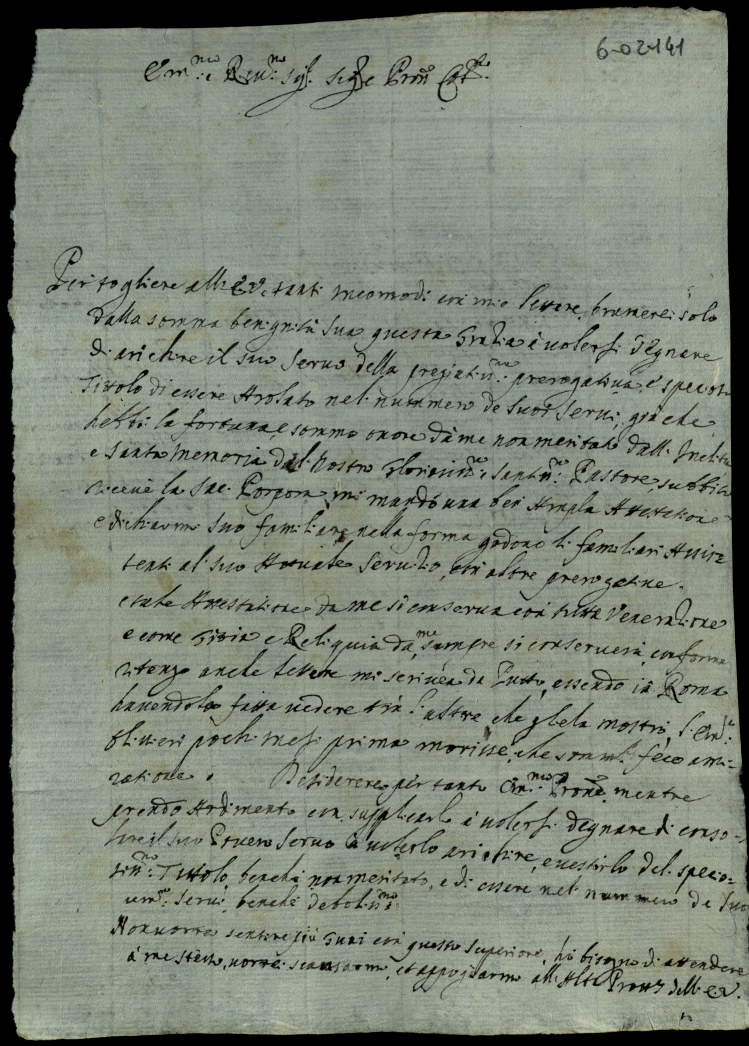 6-02-141
Em.mo e Rev.mo Sig. Sig.e Pron
Per togliere all E.V. tanti incomodi con mie lettere, bramerei solo
dalla somma benignità sua questa Gratia à volersi degnare
di arichire il suo servo della pregiatis.ma prerogativa, e
Titolo di essere Arolato nel nummero de suoi servi, già che
hebbi la fortuna, e sommo onore dà me non meritato dall Inclita
e Santa memoria del Nostro Gloriosis.mo Santis.mo Pastore, subbito
riceuè la Sac. Porpora, mi mandò una ben Ampla Attestatione
e dichiarmi suo familiare nella forma godono li familiari
tenti al suo Attuale Servitio, con altre prerogative.
e tale Attestatione da me si conserva con tutta Veneratione
e come Gioia e Reliquia da me sempre si conserverà, conforme
ritengo anche lettere mi scriveva da Tutto, essendo in Roma
havendola fatta vedere trà l'altre che gliela mostrò, l'
Olivieri pochi mesi prima morisse, che fece ami-
ratione. Desidererei per tanto Em.mo Prone, mentre
prendo Ardimento con supplicarlo à volersi degnare di conso-
lare il suo Povero Servo à volerlo arichire, e vestirlo del spezio-
sis.mo Titolo, benche non meritato, e di essere nel nummero de suoi
um.mi servi, benche debolis.mo
Non vorrei sentire più Guai con questo superiore, hò bisogno di attendere
à me stesso, vorrei scansarmi, et appogiarmi all Alta Prott. dell E.V.